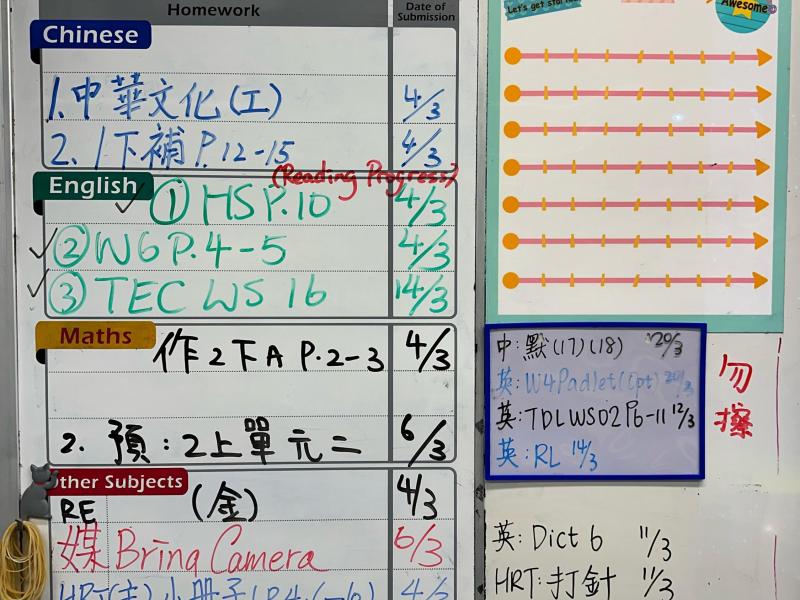 Homework
Date of Submission
Chinese
1. 中華文化(工) 4/3
2. 1下補 P.12-15 4/3
(Reading Progress)
English
① HS P.10 4/3
② W6 P.4-5 4/3
③ TEC WS 16 14/3
Maths
作2下A P.2-3 4/3
2. 預:2上單元二 6/3
Other Subjects
RE (金) 4/3
媒 Bring Camera 6/3
HRT(主)小冊子
Let's get started
Awesome
中:默(17)(18) 20/3
英:W4 Padlet(Opt) 20/3
英:TDLWS02 P6-11 12/3
英:RL 14/3
勿擦
英:Dict 6 11/3
HRT:打針 11/3